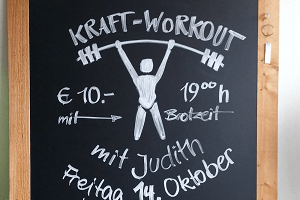 KRAFT-WORKOUT
€ 10.- 19⁰⁰h
mit Brotzeit
mit Judith
Freitag 14. Oktober